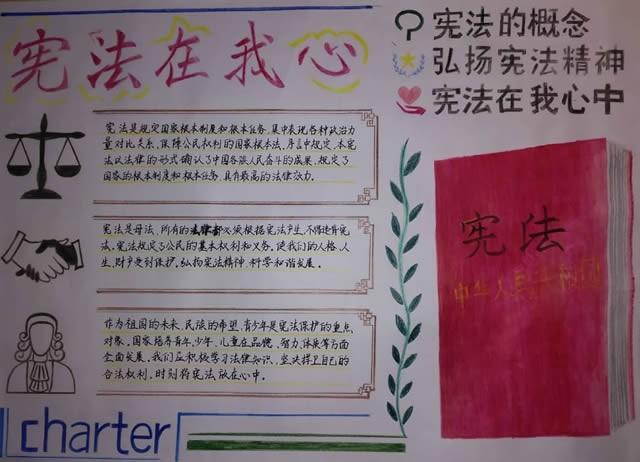 宪法在我心
宪法的概念
弘扬宪法精神
宪法在我心中
宪法是规定国家根本制度和根本任务、集中表现各种政治力
量对比关系、保障公民权利的国家根本法。序言中规定,本宪
法以法律的形式确认了中国各族人民奋斗的成果,规定了
国家的根本制度和根本任务,具有最高的法律效力。
宪法是母法,所有的法律都必须根据宪法产生,不得违背宪
法。宪法规定了公民的基本权利和义务。使我们的人格、人
生、财产受到保护。弘扬宪法精神,科学和谐发展。
作为祖国的未来、民族的希望,青少年是宪法保护的重点
对象。国家培养青年、少年、儿童在品德、智力、体质等方面
全面发展。我们应积极学习法律知识,坚决捍卫自己的
合法权利。时刻将宪法放在心中。
宪法
中华人民共和国
Charter